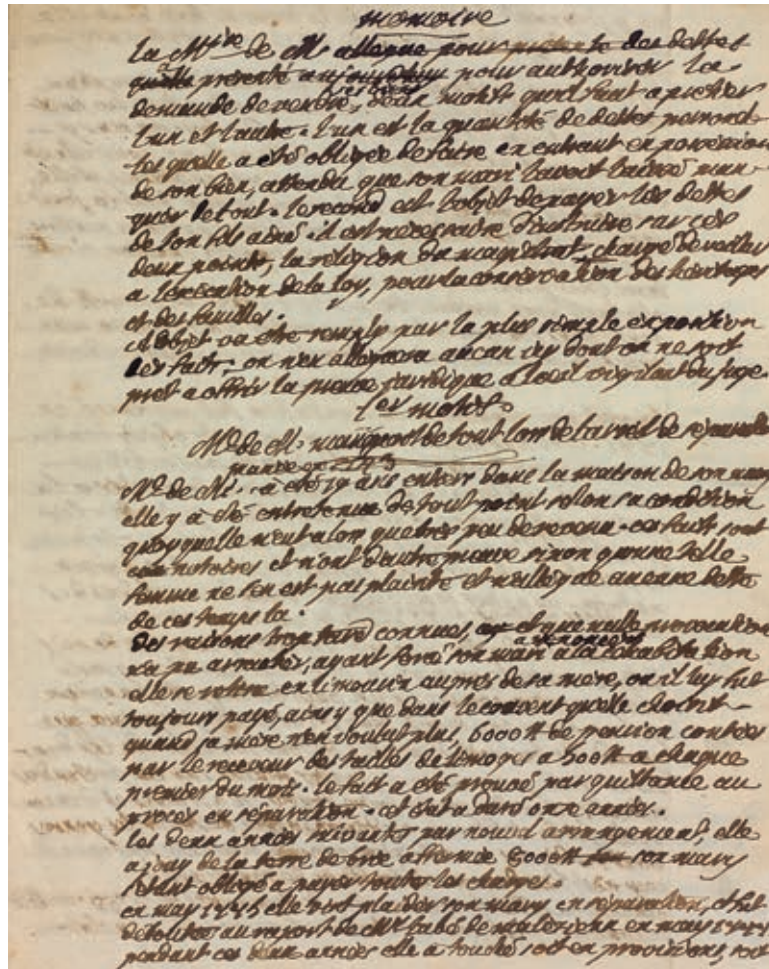 memoire
la Mise de M. allegue pour pretexte des dettes
qu'elle presente aujourdhuy pour authoriser la
demande de vendre, deux motifs qu'il faut apretier
l'un et l'autre. l'un est la quantité de dettes
les quelle a été obligée de faire en entrant en possession
de son bien, attendu que son mari l'avoit laissé man-
quer de tout. le second est l'objet de payer les dettes
de son fils ainé. il est nécessaire d'instruire sur ces
deux points, la religion du magistrat chargé de veiller
a l'exécution de la loy, pour la conservation des heritages
et des familles.
cet objet va être remply par la plus simple exposition
des faits, on n'en alleguera aucun icy dont on ne soit
pret a offrir la preuve juridique a l'oeil vigilant du juge.
1er motif.
Me de M. manquoit de tout lors de l'arrest de séparation
Me de M. a été 19 ans entiers dans la maison de son mary
elle y a été entretenue de tout point selon sa condition
quoy quelle n'eut alors que tres peu de revenu. ces faits sont
notoires et n'ont d'autre preuve sinon qu'une telle
femme ne s'en est pas plainte et qu'il n'y a aucune dette
de ces temps la.
des raisons trop tard connues, et que nulle
n'a pu arreter, ayant forcé son mari a renoncer a la cohabitation
elle se retira en limousin aupres de sa mere, ou il luy fut
toujours payé, ainsy que dans le couvent quelle choisit
quand sa mere n'en voulut plus, 6000tt de pension contées
par le receveur des tailles de limoges a 500tt a chaque
premier du mois. le fait a été prouvé par quittance au
proces en séparation. cet état a duré onze années.
les deux années suivantes par nouvel arrangement, elle
a jouy de la terre de brie affermée 5000tt son mary
s'étant obligé a payer toutes les charges.
en may 1775 elle vint plaider son mary en séparation, et fut
déboutée au raport de Mr l'abé de en may 1777
pendant ces deux années elle a touché soit en provisions, soit